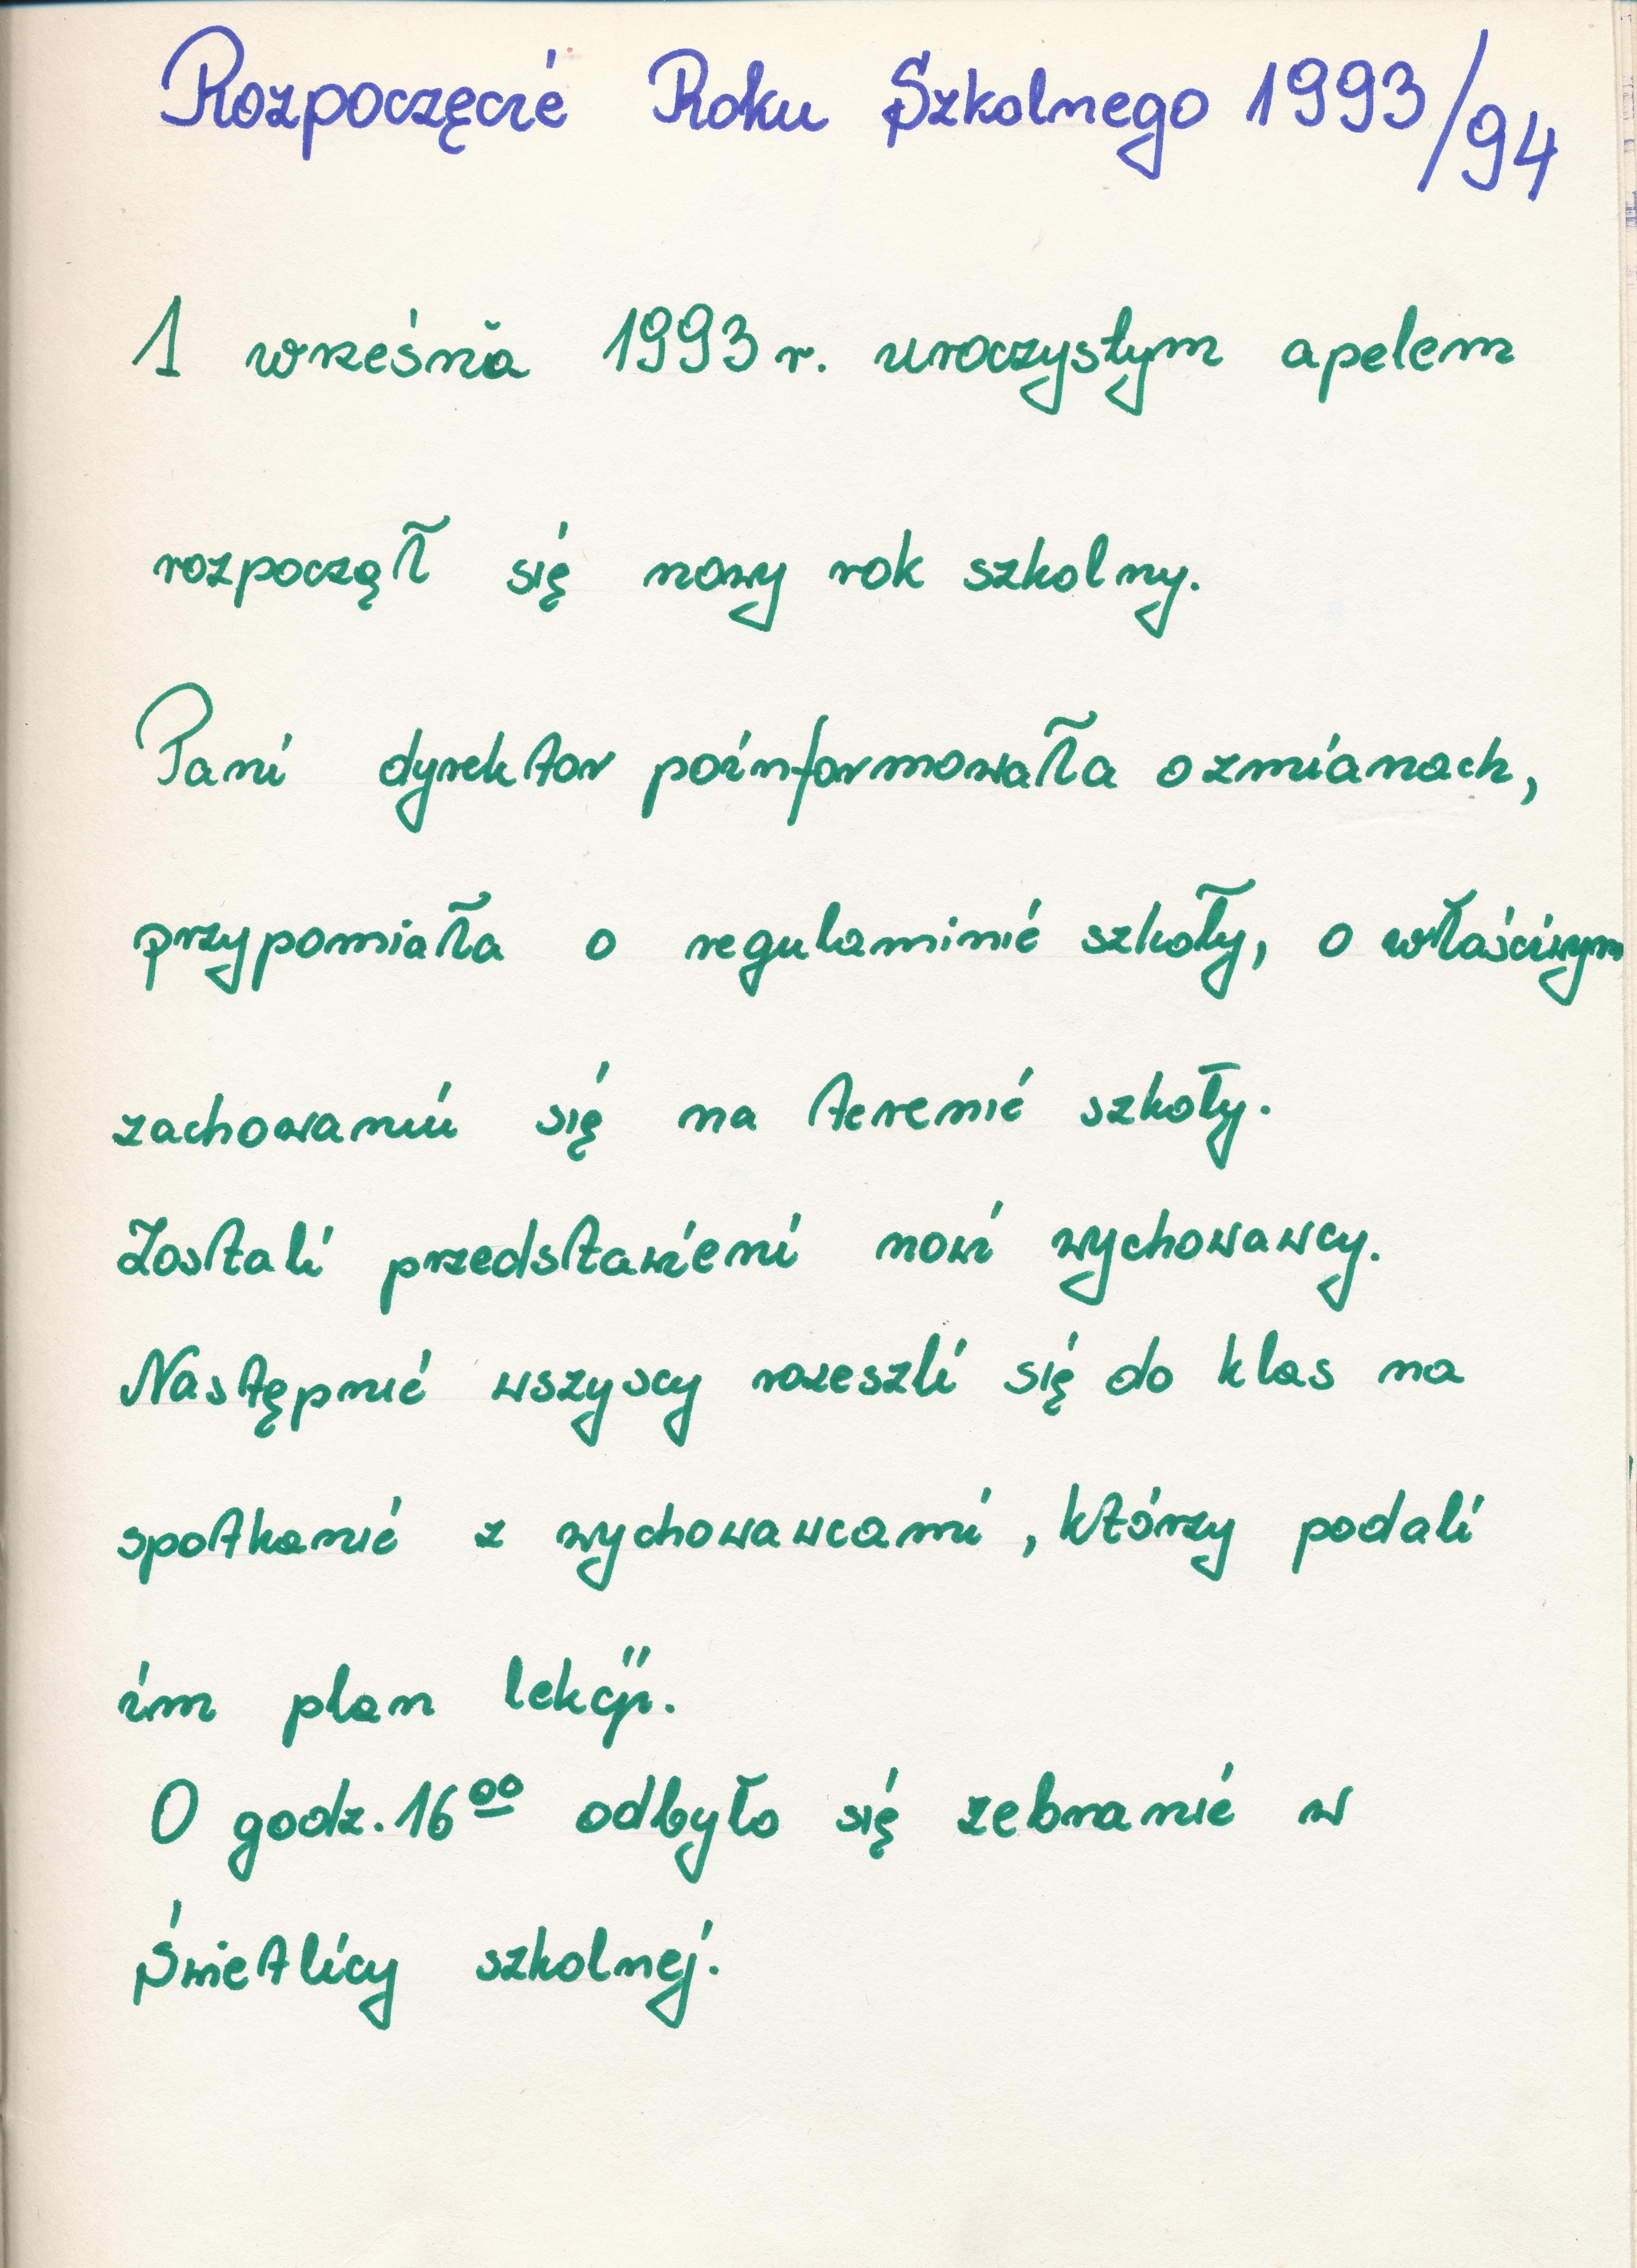 Rozpoczęcie Roku Szkolnego 1993/94
1 września 1993 r. uroczystym apelem
rozpoczął się nowy rok szkolny.
Pani dyrektor poinformowała o zmianach,
przypomiała o regulaminie szkoły, o właściwym
zachowaniu się na terenie szkoły.
Zostali przedstawieni nowi wychowawcy.
Następnie wszyscy rozeszli się do klas na
spotkanie z wychowawcami, którzy podali
im plan lekcji.
O godz. 16⁰⁰ odbyło się zebranie w
Świetlicy szkolnej.